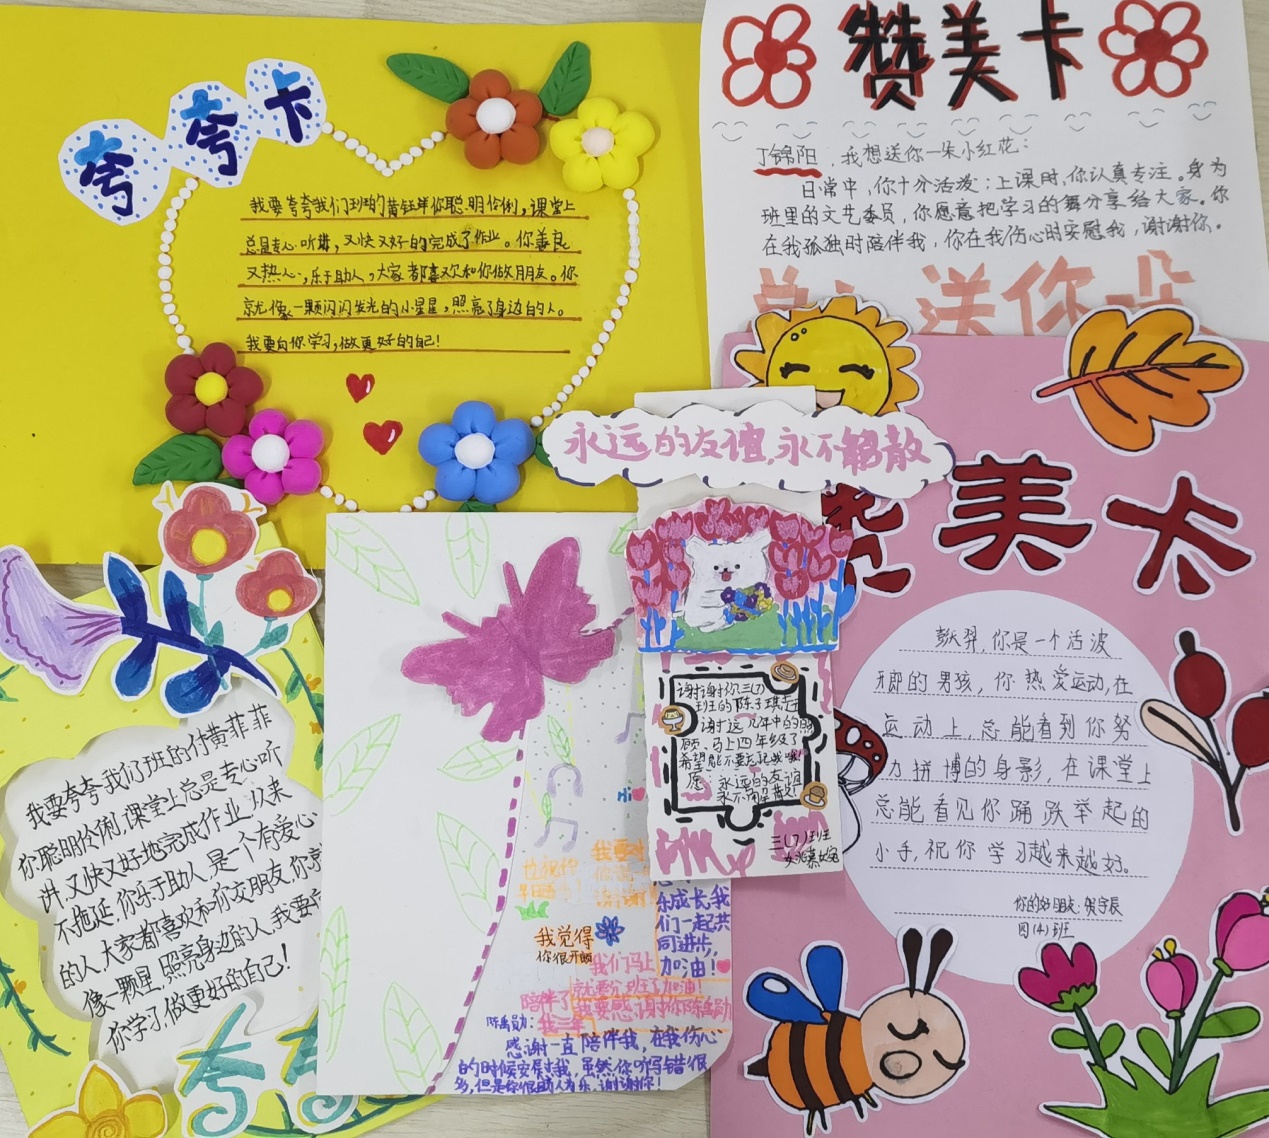 夸夸卡
我要夸夸我们班的黄钰样你聪明伶俐,课堂上
总是专心听讲,又快又好的完成了作业。你善良
又热心,乐于助人,大家都喜欢和你做朋友。你
就像一颗闪闪发光的小星星,照亮了身边的人。
我要向你学习,做更好的自己!
赞美卡
丁锦阳,我想送你一朵小红花:
日常中,你十分活泼:上课时,你认真专注。身为
班里的文艺委员,你愿意把学习的舞分享给大家。你
在我孤独时陪伴我,你在我伤心时安慰我,谢谢你。
送你一朵
永远的友谊,永不移散
美卡
彭羿,你是一个活波
天郎的男孩,你热爱运动,在
运动上,总能看到你努
力拼博的身影,在课堂上
总能看见你踊跃举起的
小手,祝你学习越来越好。
你的好朋友:贺宇辰
四(4)班
谢谢你三(7)
班的陈子琪
谢这几年中的照
顾、马上四年级了
希望能不要忘记我哦!
愿永远的友谊
永不消散!
三(7)班
我要夸夸我们班的付黄菲菲
你聪明伶俐,课堂上总是专心听
讲,又快又好地完成作业,从来
不拖延,你乐于助人,是一个有爱心
的人,大家都喜欢和你交朋友,你就
像一颗星,照亮身边的人,我要
你学习,做更好的自己!
夸夸
Hi
成长我
们一起共
同进步,
加油!
我觉得
你很开朗
我们马上
就要分班了加油!
陪伴了我要感谢你陈禹勋
我三年
陈禹勋:
感谢一直陪伴我,在我伤心
的时候安慰我,虽然你
多,但是你很助人为乐,谢谢你!